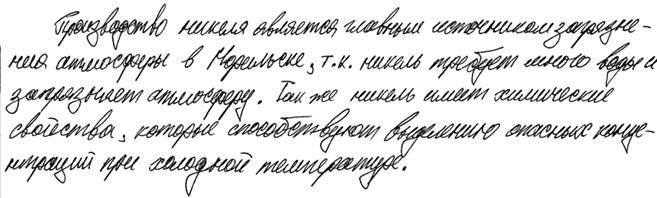 Производство никеля является главным источником загрязне-
ния атмосферы в Норильске, т.к. никель требует много воды и
загрязняет атмосферу. Так же никель имеет химические
свойства, которые способствуют выделению опасных конце-
нтраций при холодной температуре.